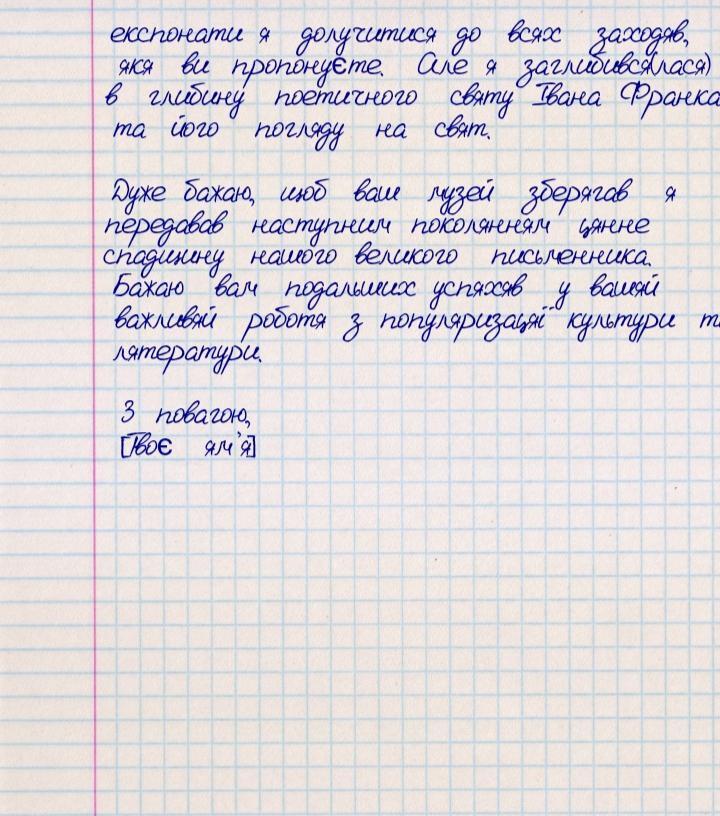 експонати я долучитися до всях заходяв,
якя ви пропонуєте. Але я заглибився(лася)
в глибину поетичного святу Івана Франка
та його погляду на свят.
Дуже бажаю, щоб ваш музей зберягав я
передавав наступним поколянням цянне
спадщину нашого великого письменника.
Бажаю вам подальших успяхяв у вашяй
важливяй роботя з популяризацяї культури та
лятератури.
З повагою,
[Твоє ям'я]